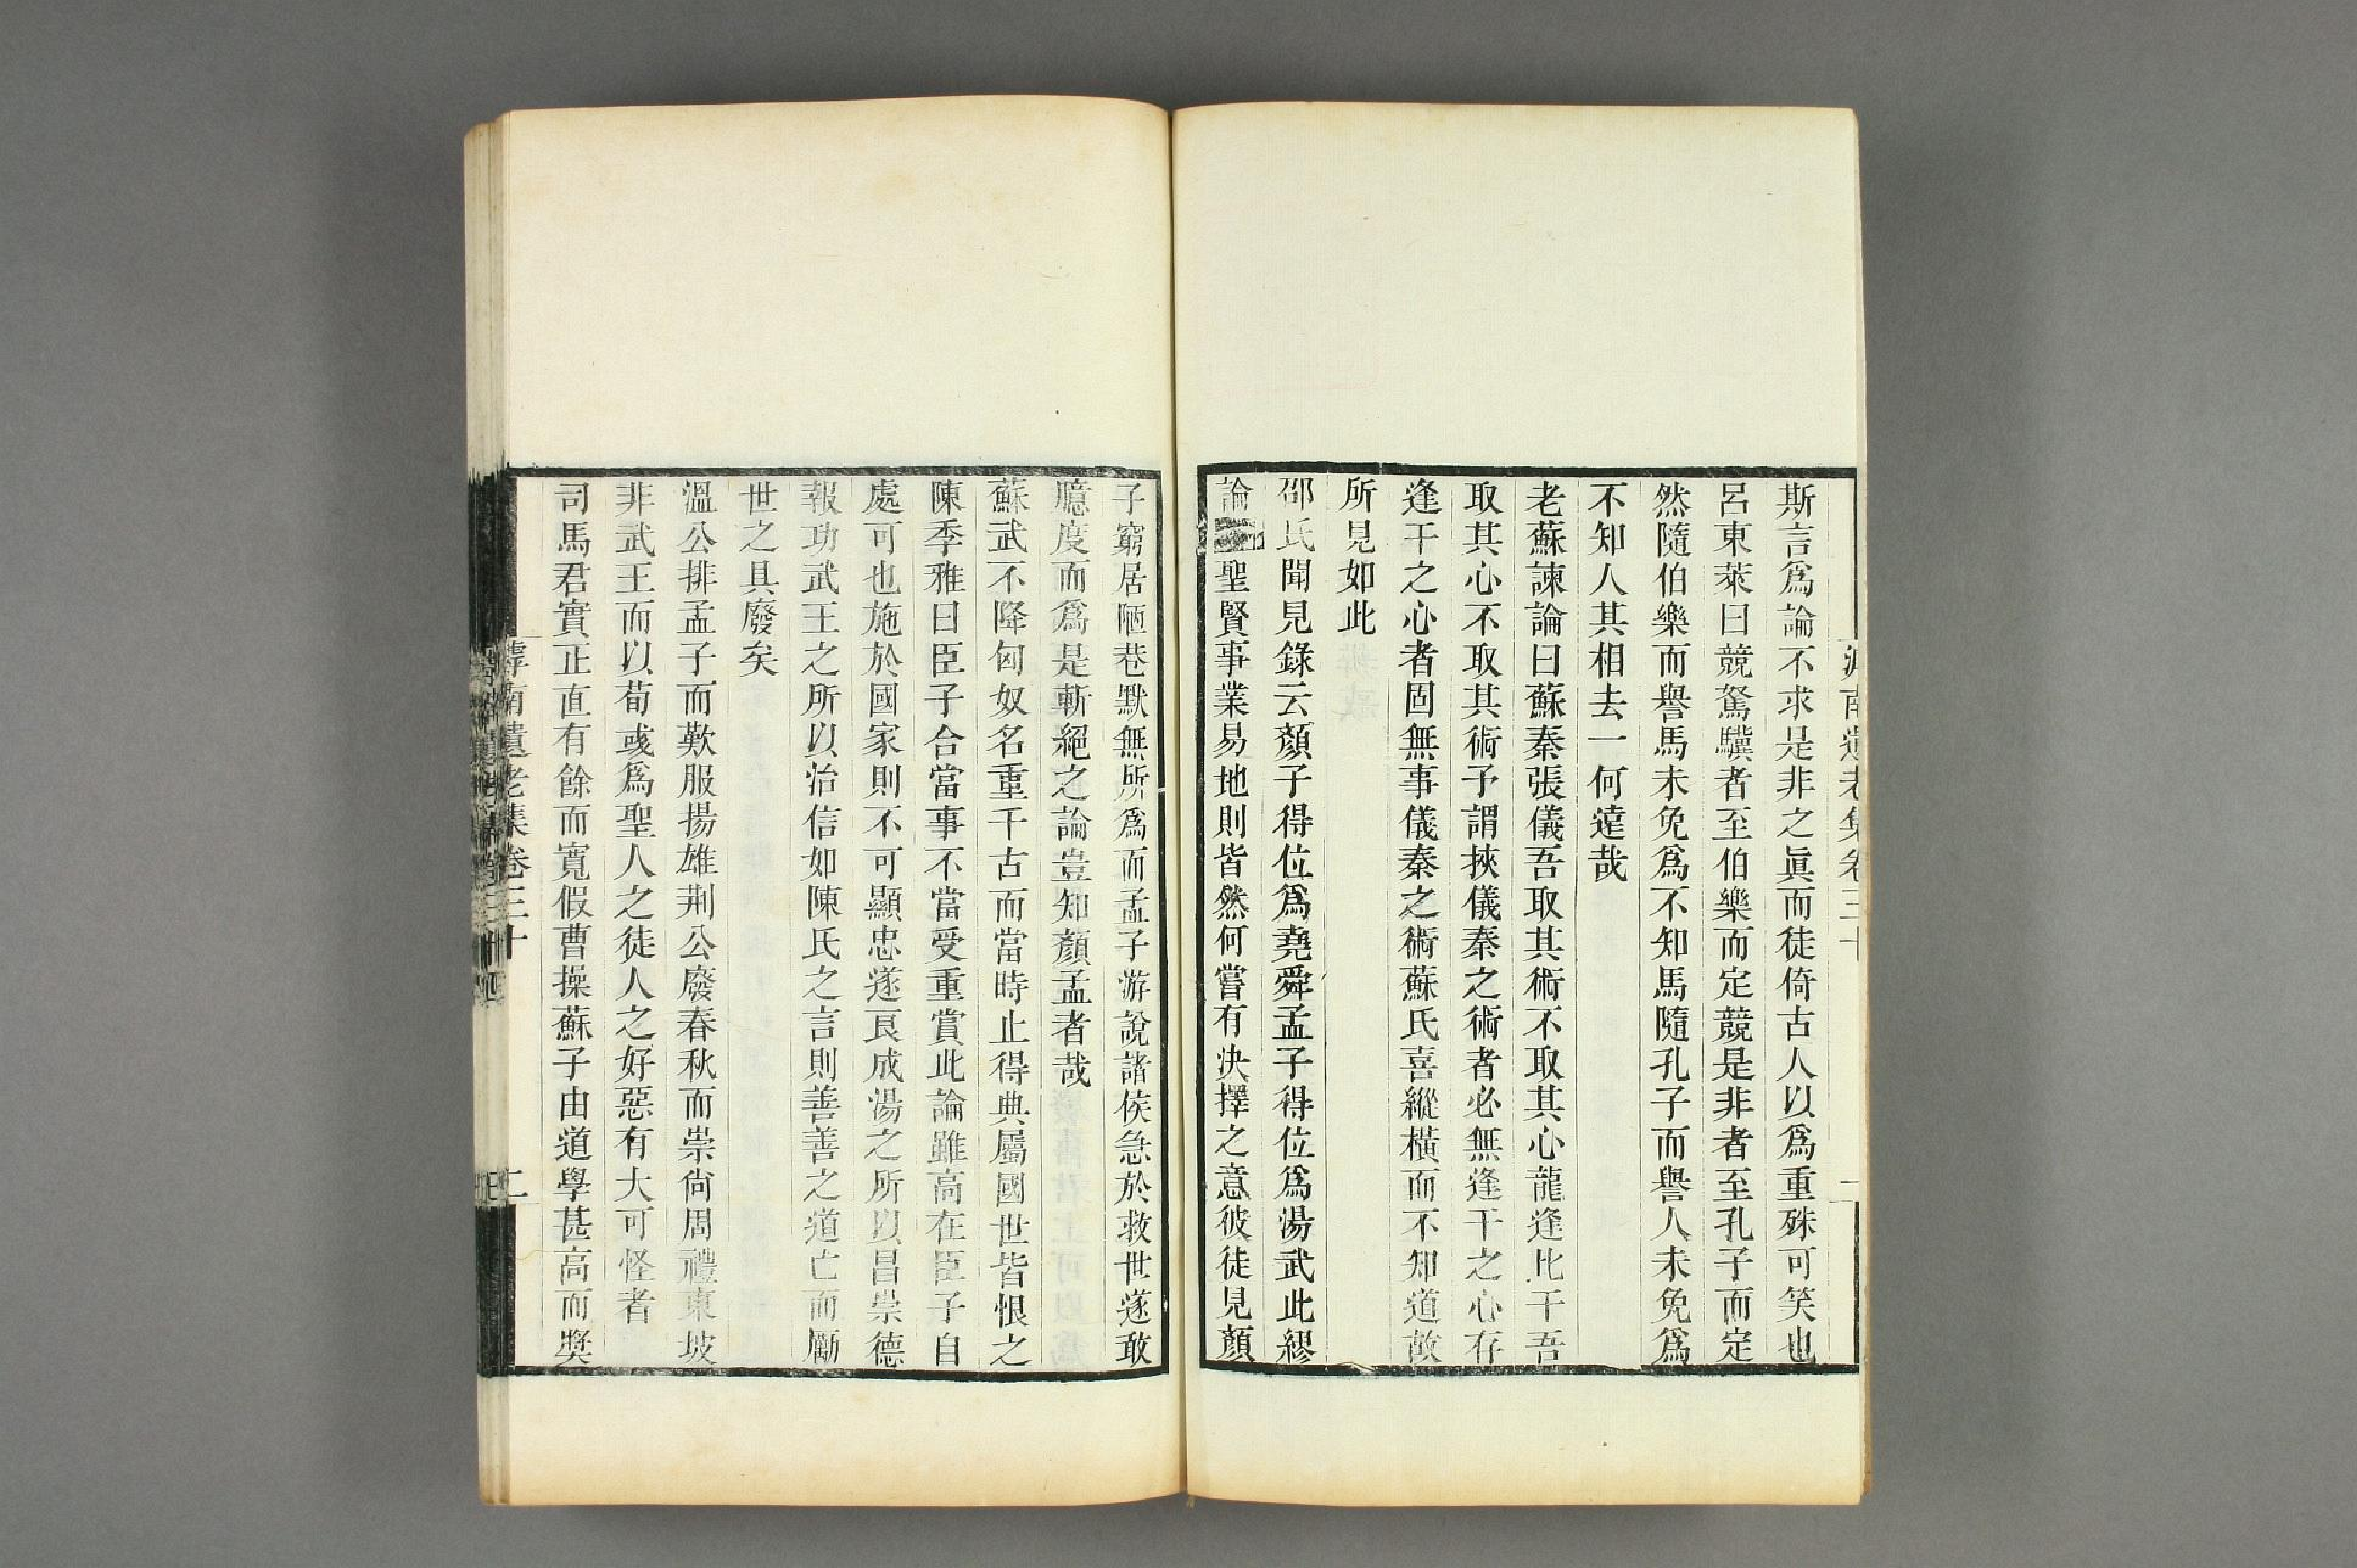 斯言爲論不求是非之眞而徒倚古人以爲重殊可笑也
呂東萊曰競駑驥者至伯樂而定競是非者至孔子而定
然隨伯樂而譽馬未免爲不知馬隨孔子而譽人未免爲
不知人其相去一何遠哉
老蘇諫論曰蘇秦張儀吾取其術不取其心龍逢比干吾
取其心不取其術予謂挾儀秦之術者必無逢干之心存
逢干之心者固無事儀秦之術蘇氏喜縱橫而不知道故
所見如此
邵氏聞見錄云顏子得位爲堯舜孟子得位爲湯武此繆
論聖賢事業易地則皆然何嘗有決擇之意彼徒見顏
子窮居陋巷默無所爲而孟子游說諸侯急於救世遂敢
臆度而爲是斬絕之論豈知顏孟者哉
蘇武不降匈奴名重千古而當時止得典屬國世皆恨之
陳季雅曰臣子合當事不當受重賞此論雖高在臣子自
處可也施於國家則不可顯忠遂良成湯之所以昌崇德
報功武王之所以治信如陳氏之言則善善之道亡而勵
世之具廢矣
溫公排孟子而歎服揚雄荆公廢春秋而崇尙周禮東坡
非武王而以荀彧爲聖人之徒人之好惡有大可怪者
司馬君實正直有餘而寬假曹操蘇子由道學甚高而獎
滹南遺老集卷三十
二